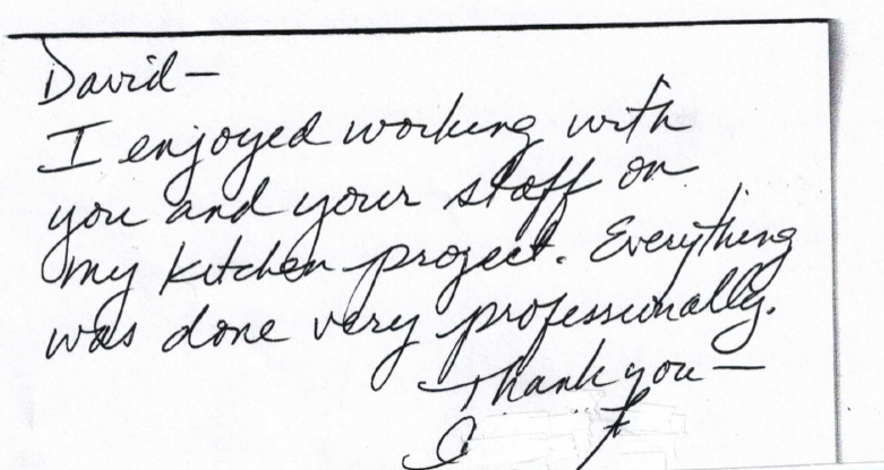 David—
I enjoyed working with
you and your staff on
my kitchen project. Everything
was done very professionally.
Thank you—